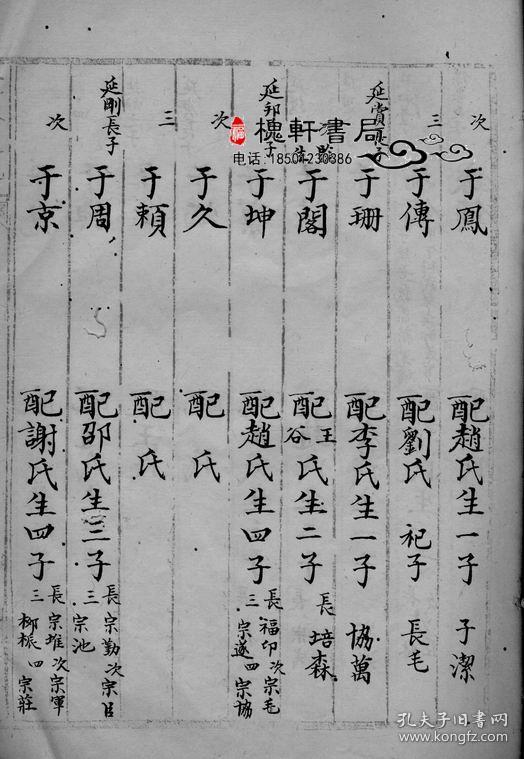 次 于鳳 配趙氏生一子 子潔
三 于傳 配劉氏 祀子 長毛
延賞 子 于珊 配李氏生一子 協萬
于閣 配王谷氏生二子 長 培森
延邦 子 于坤 配趙氏生四子 長福印次宗毛三宗遂四宗協
次 于久 配 氏
三 于賴 配 氏
延剛長子 于周 配邵氏生三子 長宗勤次宗 三宗池
次 于京 配謝氏生四子 長宗堆次宗軍三柳桭四宗莊
槐軒書局
电话:18504230386
孔夫子旧书网
www.kongfz.com